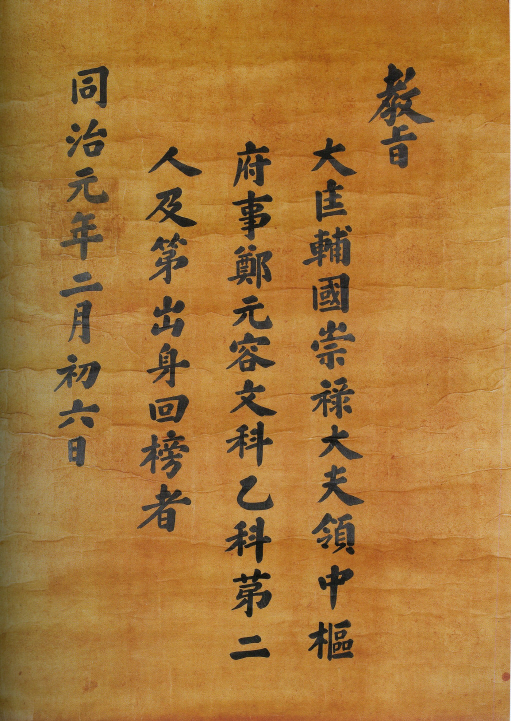 教旨
大匡輔國崇祿大夫領中樞
府事鄭元容文科乙科苐二
人及第出身回榜者
同治元年二月初六日